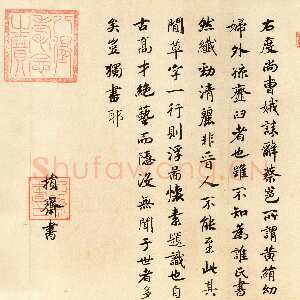 右度尚曹娥誄辭蔡邕所謂黄絹幼
婦外孫齏臼者也雖不知為誰氏書
然纖勁清麗非晉人不能至此其
間草字一行則浮屠懷素題識也自
古高才絕藝而隱没無聞于世者多
矣豈獨書耶
損齋書